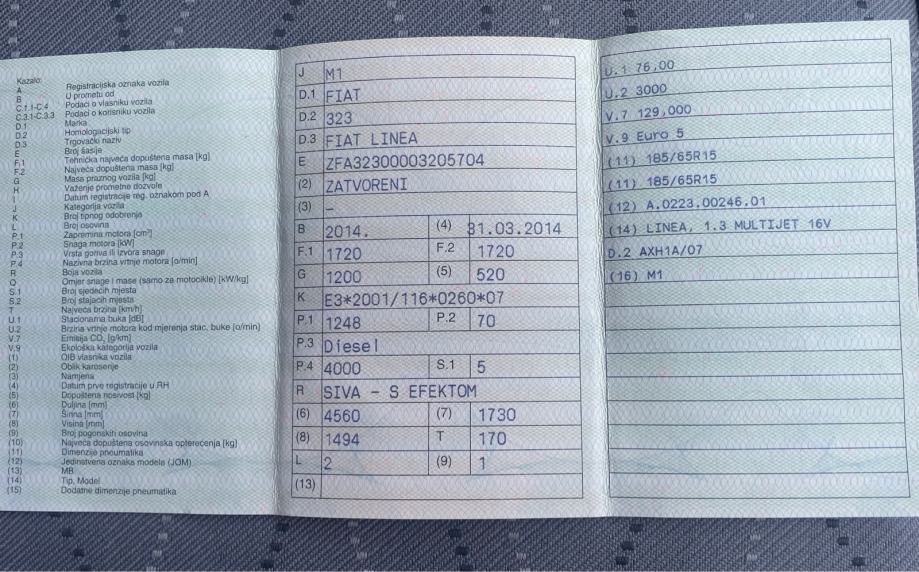 Kazalo:
A Registracijska oznaka vozila
B U prometu od
C.1.1-C.4 Podaci o vlasniku vozila
C.3.1-C.3.3 Podaci o korisniku vozila
D.1 Marka
D.2 Homologacijski tip
D.3 Trgovački naziv
E Broj šasije
F.1 Tehnička najveća dopuštena masa [kg]
F.2 Najveća dopuštena masa [kg]
G Masa praznog vozila [kg]
H Važenje prometne dozvole
I Datum registracije reg. oznakom pod A
J Kategorija vozila
K Broj tipnog odobrenja
L Broj osovina
P.1 Zapremina motora [cm³]
P.2 Snaga motora [kW]
P.3 Vrsta goriva ili izvora snage
P.4 Nazivna brzina vrtnje motora [o/min]
R Boja vozila
Q Omjer snage i mase (samo za motocikle) [kW/kg]
S.1 Broj sjedećih mjesta
S.2 Broj stajaćih mjesta
T Najveća brzina [km/h]
U.1 Stacionarna buka [dB]
U.2 Brzina vrtnje motora kod mjerenja stac. buke [o/min]
V.7 Emisija CO₂ [g/km]
V.9 Ekološka kategorija vozila
(1) OIB vlasnika vozila
(2) Oblik karoserije
(3) Namjena
(4) Datum prve registracije u RH
(5) Dopuštena nosivost [kg]
(6) Duljina [mm]
(7) Širina [mm]
(8) Visina [mm]
(9) Broj pogonskih osovina
(10) Najveća dopuštena osovinska opterećenja [kg]
(11) Dimenzije pneumatika
(12) Jedinstvena oznaka modela (JOM)
(13) MB
(14) Tip, Model
(15) Dodatne dimenzije pneumatika
J M1
D.1 FIAT
D.2 323
D.3 FIAT LINEA
E ZFA32300003205704
(2) ZATVORENI
(3) –
B 2014. (4) 31.03.2014
F.1 1720 F.2 1720
G 1200 (5) 520
K E3*2001/116*0260*07
P.1 1248 P.2 70
P.3 Diesel
P.4 4000 S.1 5
R SIVA - S EFEKTOM
(6) 4560 (7) 1730
(8) 1494 T 170
L 2 (9) 1
(13)
U.1 76,00
U.2 3000
V.7 129,000
V.9 Euro 5
(11) 185/65R15
(11) 185/65R15
(12) A.0223.00246.01
(14) LINEA, 1.3 MULTIJET 16V
D.2 AXH1A/07
(16) M1